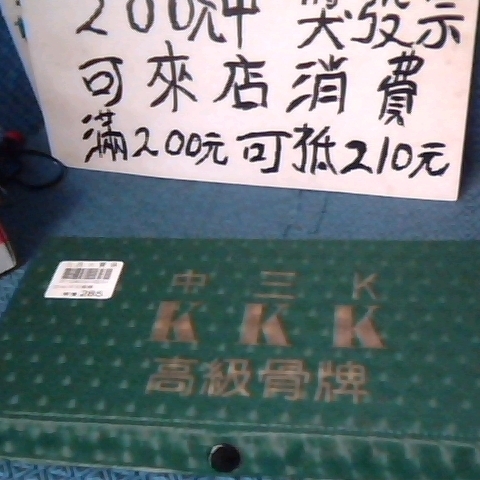 200元中獎發示
可來店消費
滿200元可抵210元
285
中三K
KKK
高級骨牌